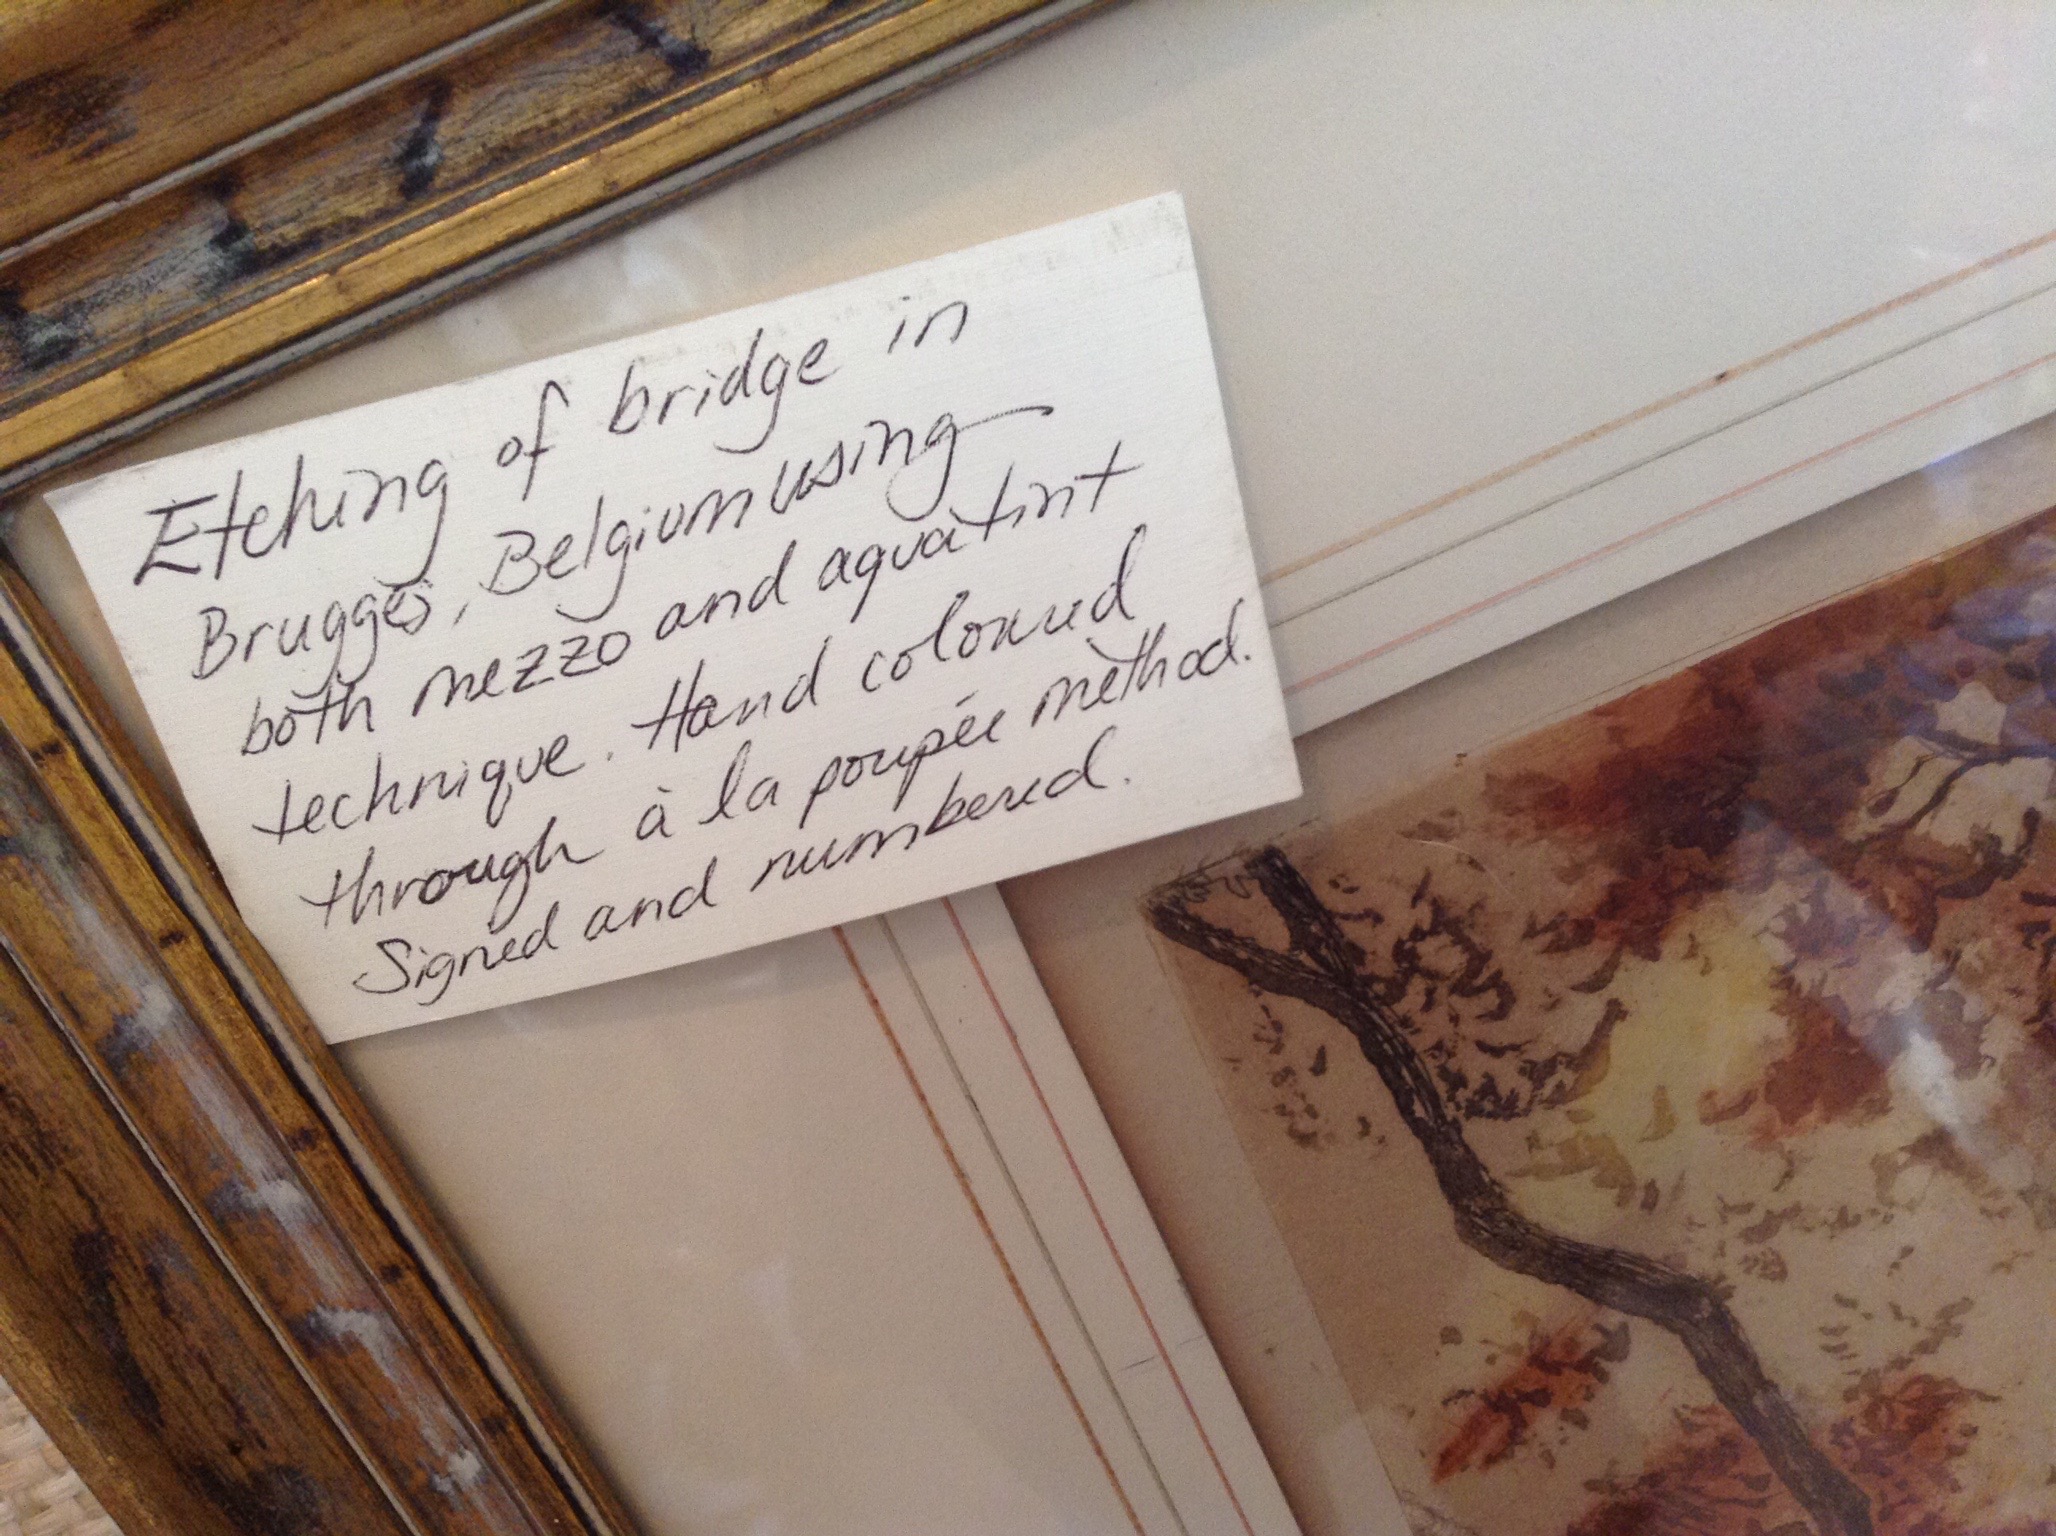 Etching of bridge in
Brugges, Belgium using
both mezzo and aquatint
technique. Hand coloured
through à la poupée method.
Signed and numbered.